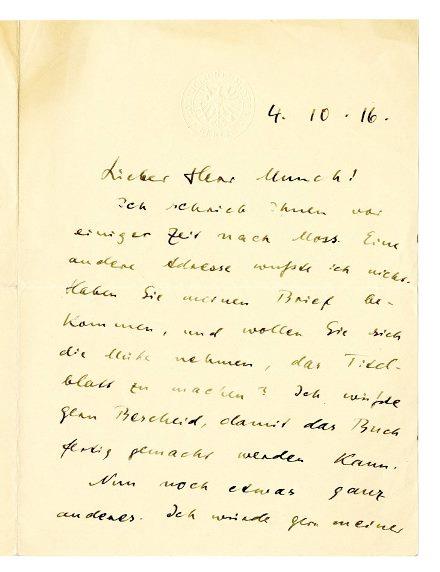 4. 10. 16.
Lieber Herr Munch!
Ich schrieb Ihnen vor
einiger Zeit nach Moss. Eine
andere Adresse wußte ich nicht.
Haben Sie meinen Brief be-
kommen, und wollen Sie sich
die Mühe nehmen, das Titel-
blatt zu machen? Ich wüßte
gern Bescheid, damit das Buch
fertig gemacht werden kann.
Nun noch etwas ganz
anderes. Ich würde gern meiner